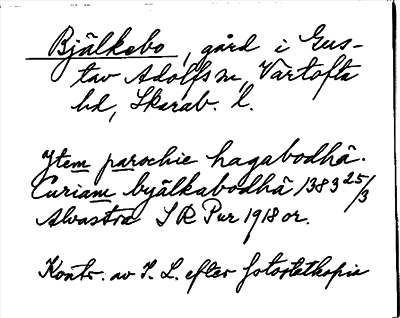 Bjälkabo, gård i Gus-
tav Adolfs sn, Vartofta
hd, Skarab. l.
Jtem parochie hagabodhä.
Curiam byälkabodhä 1383 25/3
Alvastra SR Pur 1918 or.
Kontr. av S. L. efter fotostatkopia